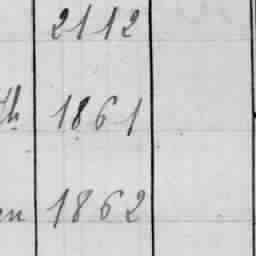 2112
th 1861
en 1862